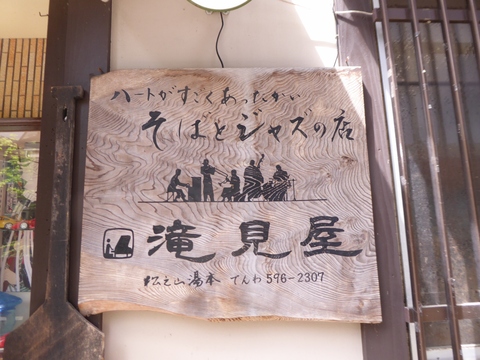 ハートがすごくあったかい
そばとジャズの店
滝見屋
松之山湯本 でんわ 596-2307